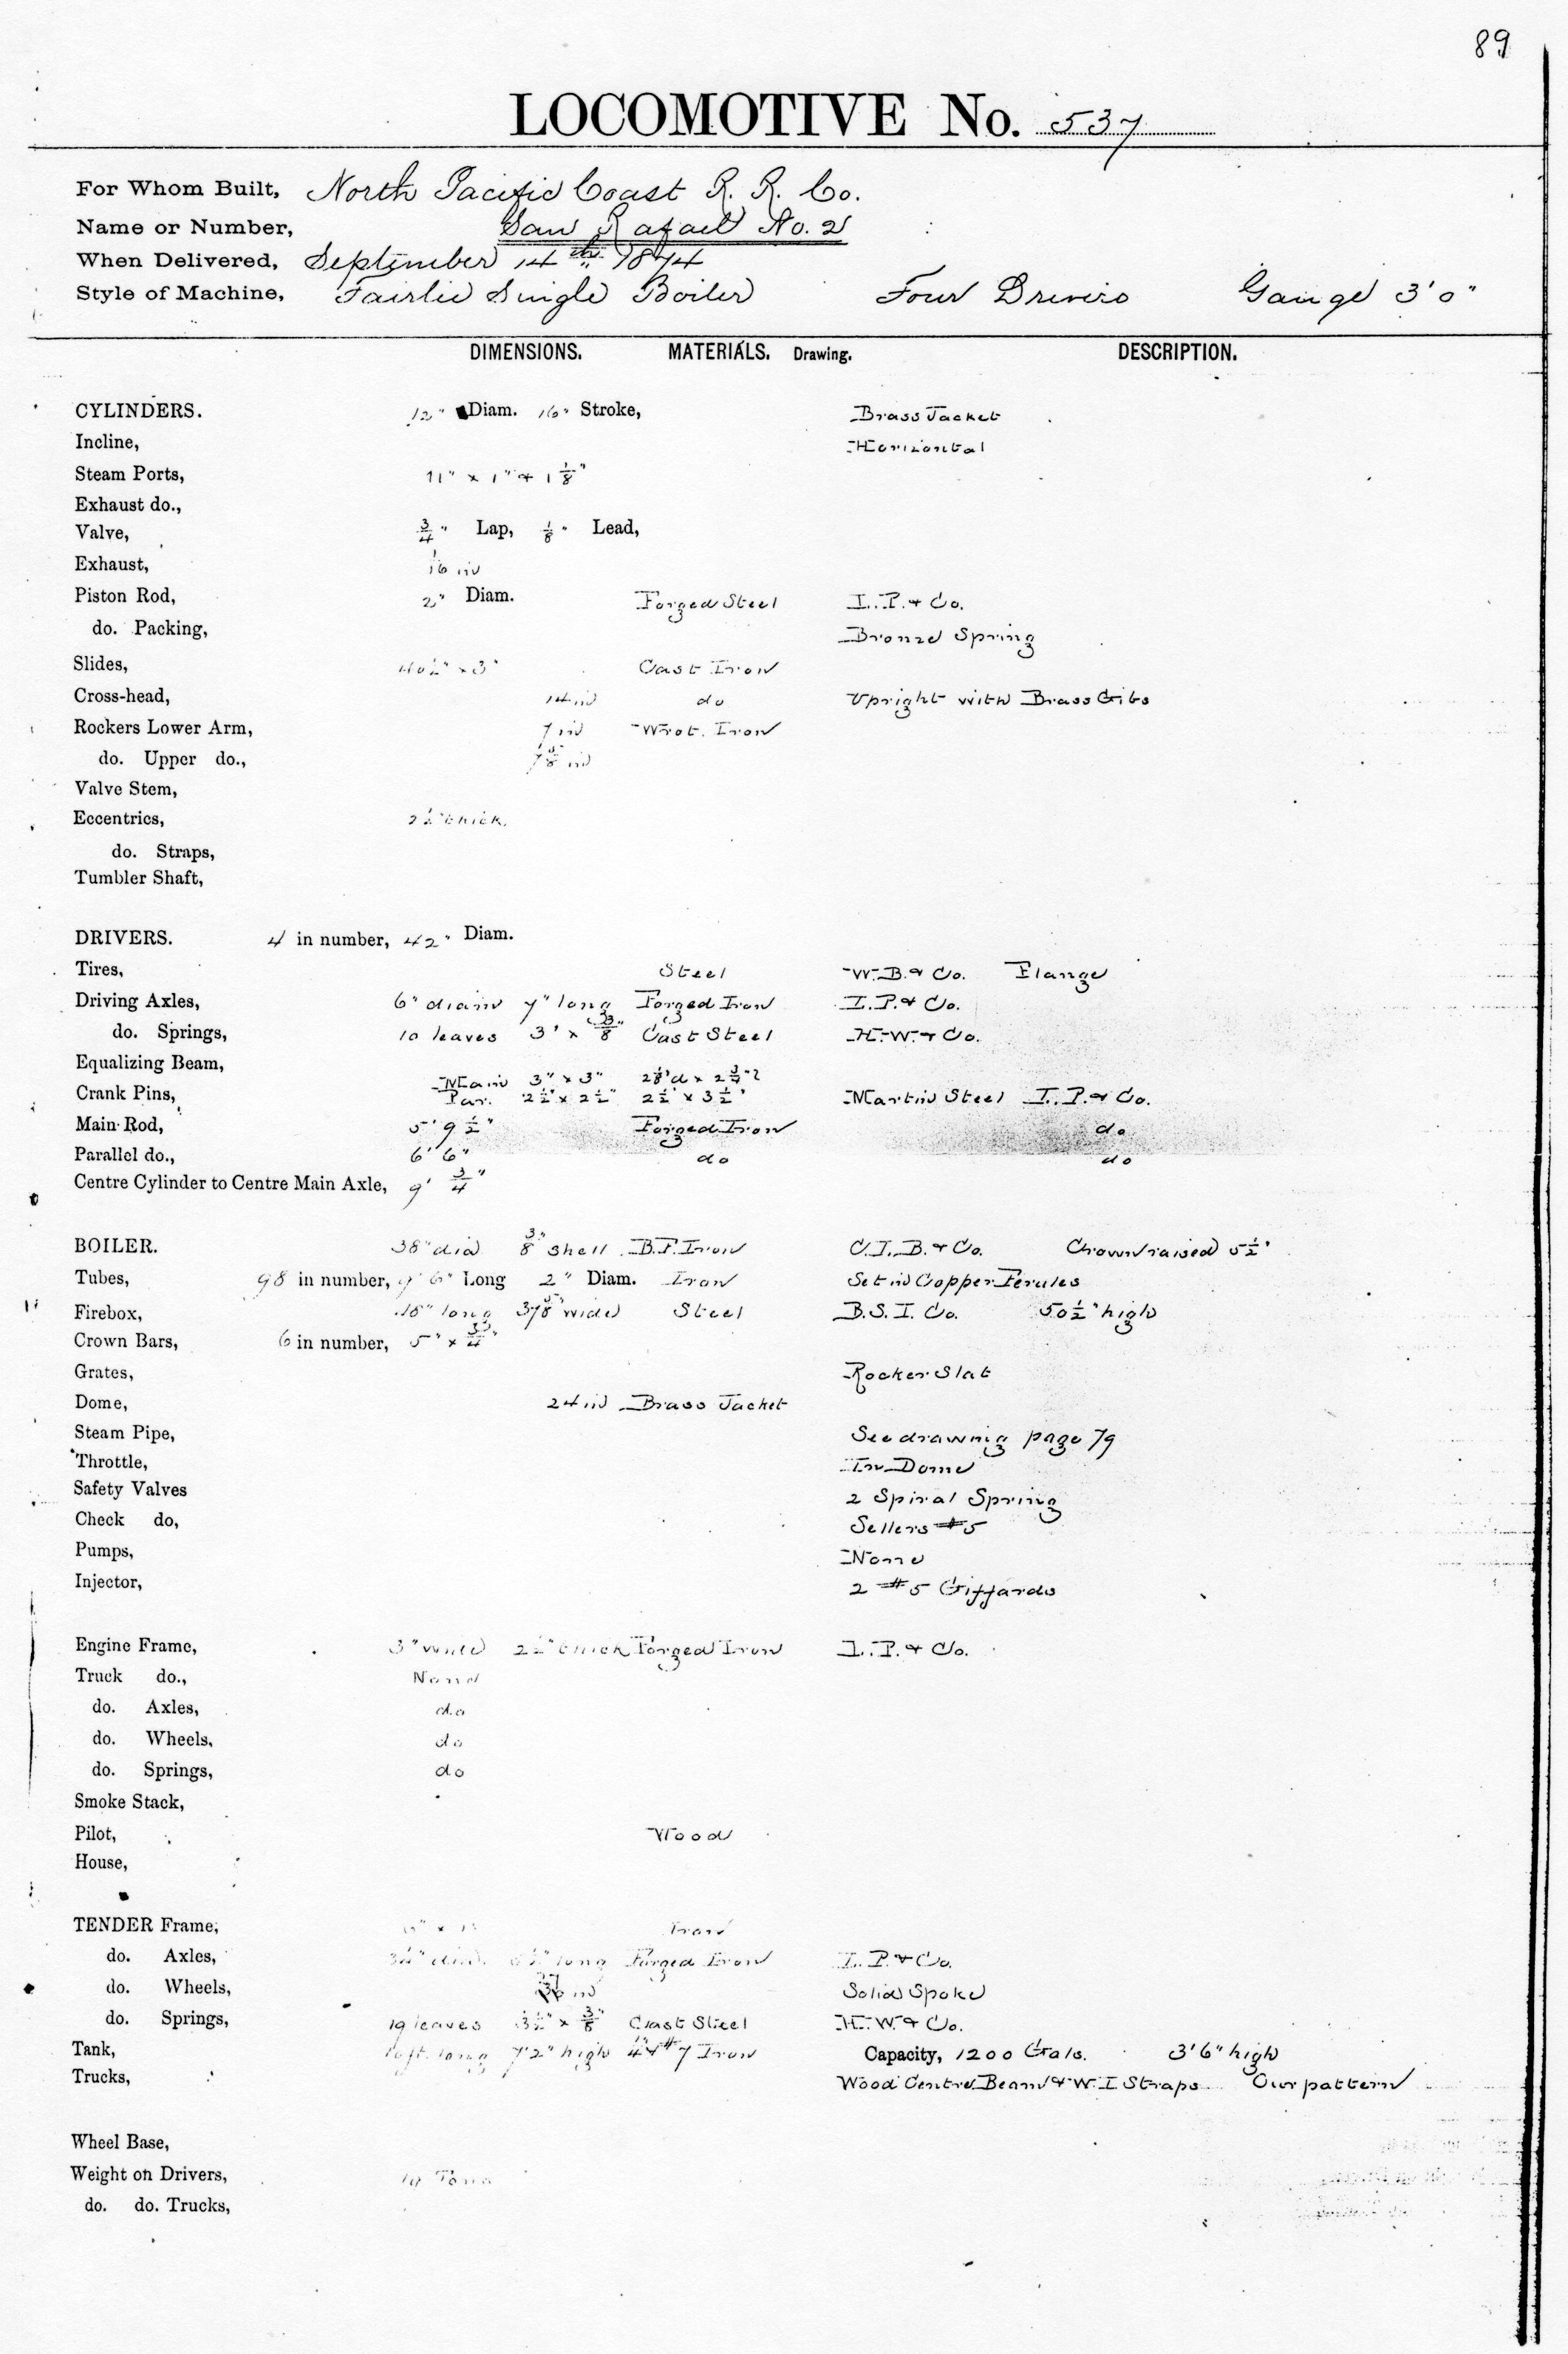 89
LOCOMOTIVE No. 537
For Whom Built, North Pacific Coast R. R. Co.
Name or Number, San Rafael No. 2
When Delivered, September 14th 1874
Style of Machine, Fairlie Single Boiler Four Drivers Gauge 3' 0"
DIMENSIONS. MATERIALS. Drawing. DESCRIPTION.
CYLINDERS. 12" Diam. 16" Stroke, Brass Jacket
Incline, Horizontal
Steam Ports, 11" x 1" & 1 1/8"
Exhaust do.,
Valve, 3/4" Lap, 1/8" Lead,
Exhaust, 1/16 in
Piston Rod, 2" Diam. Forged Steel I. P. & Co.
do. Packing, Bronze Spring
Slides, 40 1/2" x 3" Cast Iron
Cross-head, 14 in do Upright with Brass Gibs
Rockers Lower Arm, 7 in Wrot. Iron
do. Upper do., in
Valve Stem,
Eccentrics, 2 1/2" thick.
do. Straps,
Tumbler Shaft,
DRIVERS. 4 in number, 42" Diam.
Tires, Steel W. B. & Co. Flange
Driving Axles, 6" diam 7" long Forged Iron I. P. & Co.
do. Springs, 10 leaves 3" x 3/8" Cast Steel H. W. & Co.
Equalizing Beam,
Main 3" x 3"
Crank Pins, Par. 2 1/2" x 2 1/2" 2 1/2" x 3 1/2" Martin Steel I. P. & Co.
Main Rod, 5' 9 1/2" Forged Iron do
Parallel do., 6' 6" do do
Centre Cylinder to Centre Main Axle, 9' 3/4"
BOILER. 38" dia 3/8" shell B. F. Iron C. I. B. & Co. Crown raised 5 1/2"
Tubes, 98 in number, 9' 6" Long 2" Diam. Iron Set in Copper Ferules
Firebox, long wide Steel B. S. I. Co. 50 1/2" high
Crown Bars, 6 in number, 5" x 3/4"
Grates, Rocker Slat
Dome, 24 in Brass Jacket
Steam Pipe, See drawing page 79
Throttle, In Dome
Safety Valves 2 Spiral Spring
Check do, Sellers #5
Pumps, None
Injector, 2 #5 Giffards
Engine Frame, 3" wide 2 1/2" thick Forged Iron I. P. & Co.
Truck do., None
do. Axles, do
do. Wheels, do
do. Springs, do
Smoke Stack,
Pilot, Wood
House,
TENDER Frame, Iron
do. Axles, dia. long Forged Iron I. P. & Co.
do. Wheels, in Solid Spoke
do. Springs, 19 leaves 3 1/2" x 3/8" Cast Steel H. W. & Co.
Tank, long 7' 2" high #7 Iron Capacity, 1200 Gals. 3' 6" high
Trucks, Wood Centre Beam & W. I Straps Our pattern
Wheel Base,
Weight on Drivers, Tons
do. do. Trucks,